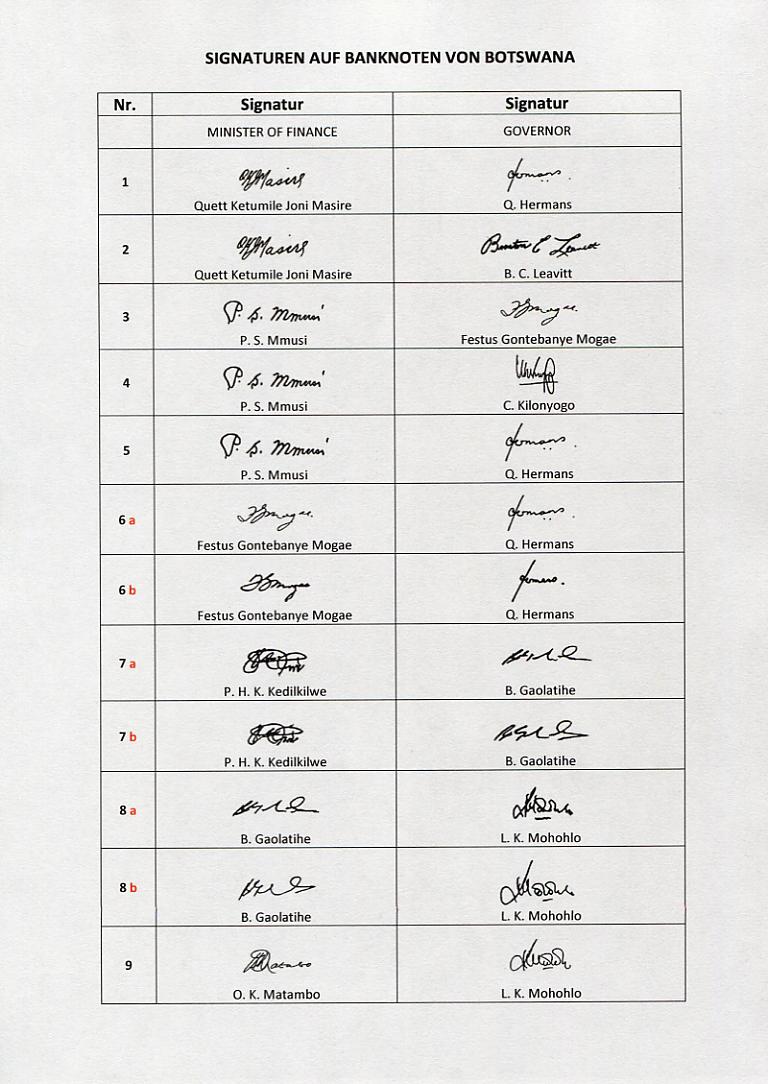 SIGNATUREN AUF BANKNOTEN VON BOTSWANA
Nr. Signatur Signatur
MINISTER OF FINANCE GOVERNOR
1
Quett Ketumile Joni Masire Q. Hermans
2
Quett Ketumile Joni Masire B. C. Leavitt
3 P. S. Mmusi
P. S. Mmusi Festus Gontebanye Mogae
4 P. S. Mmusi
P. S. Mmusi C. Kilonyogo
5 P. S. Mmusi
P. S. Mmusi Q. Hermans
6 a
Festus Gontebanye Mogae Q. Hermans
6 b
Festus Gontebanye Mogae Q. Hermans
7 a
P. H. K. Kedilkilwe B. Gaolatihe
7 b
P. H. K. Kedilkilwe B. Gaolatihe
8 a
B. Gaolatihe L. K. Mohohlo
8 b
B. Gaolatihe L. K. Mohohlo
9
O. K. Matambo L. K. Mohohlo